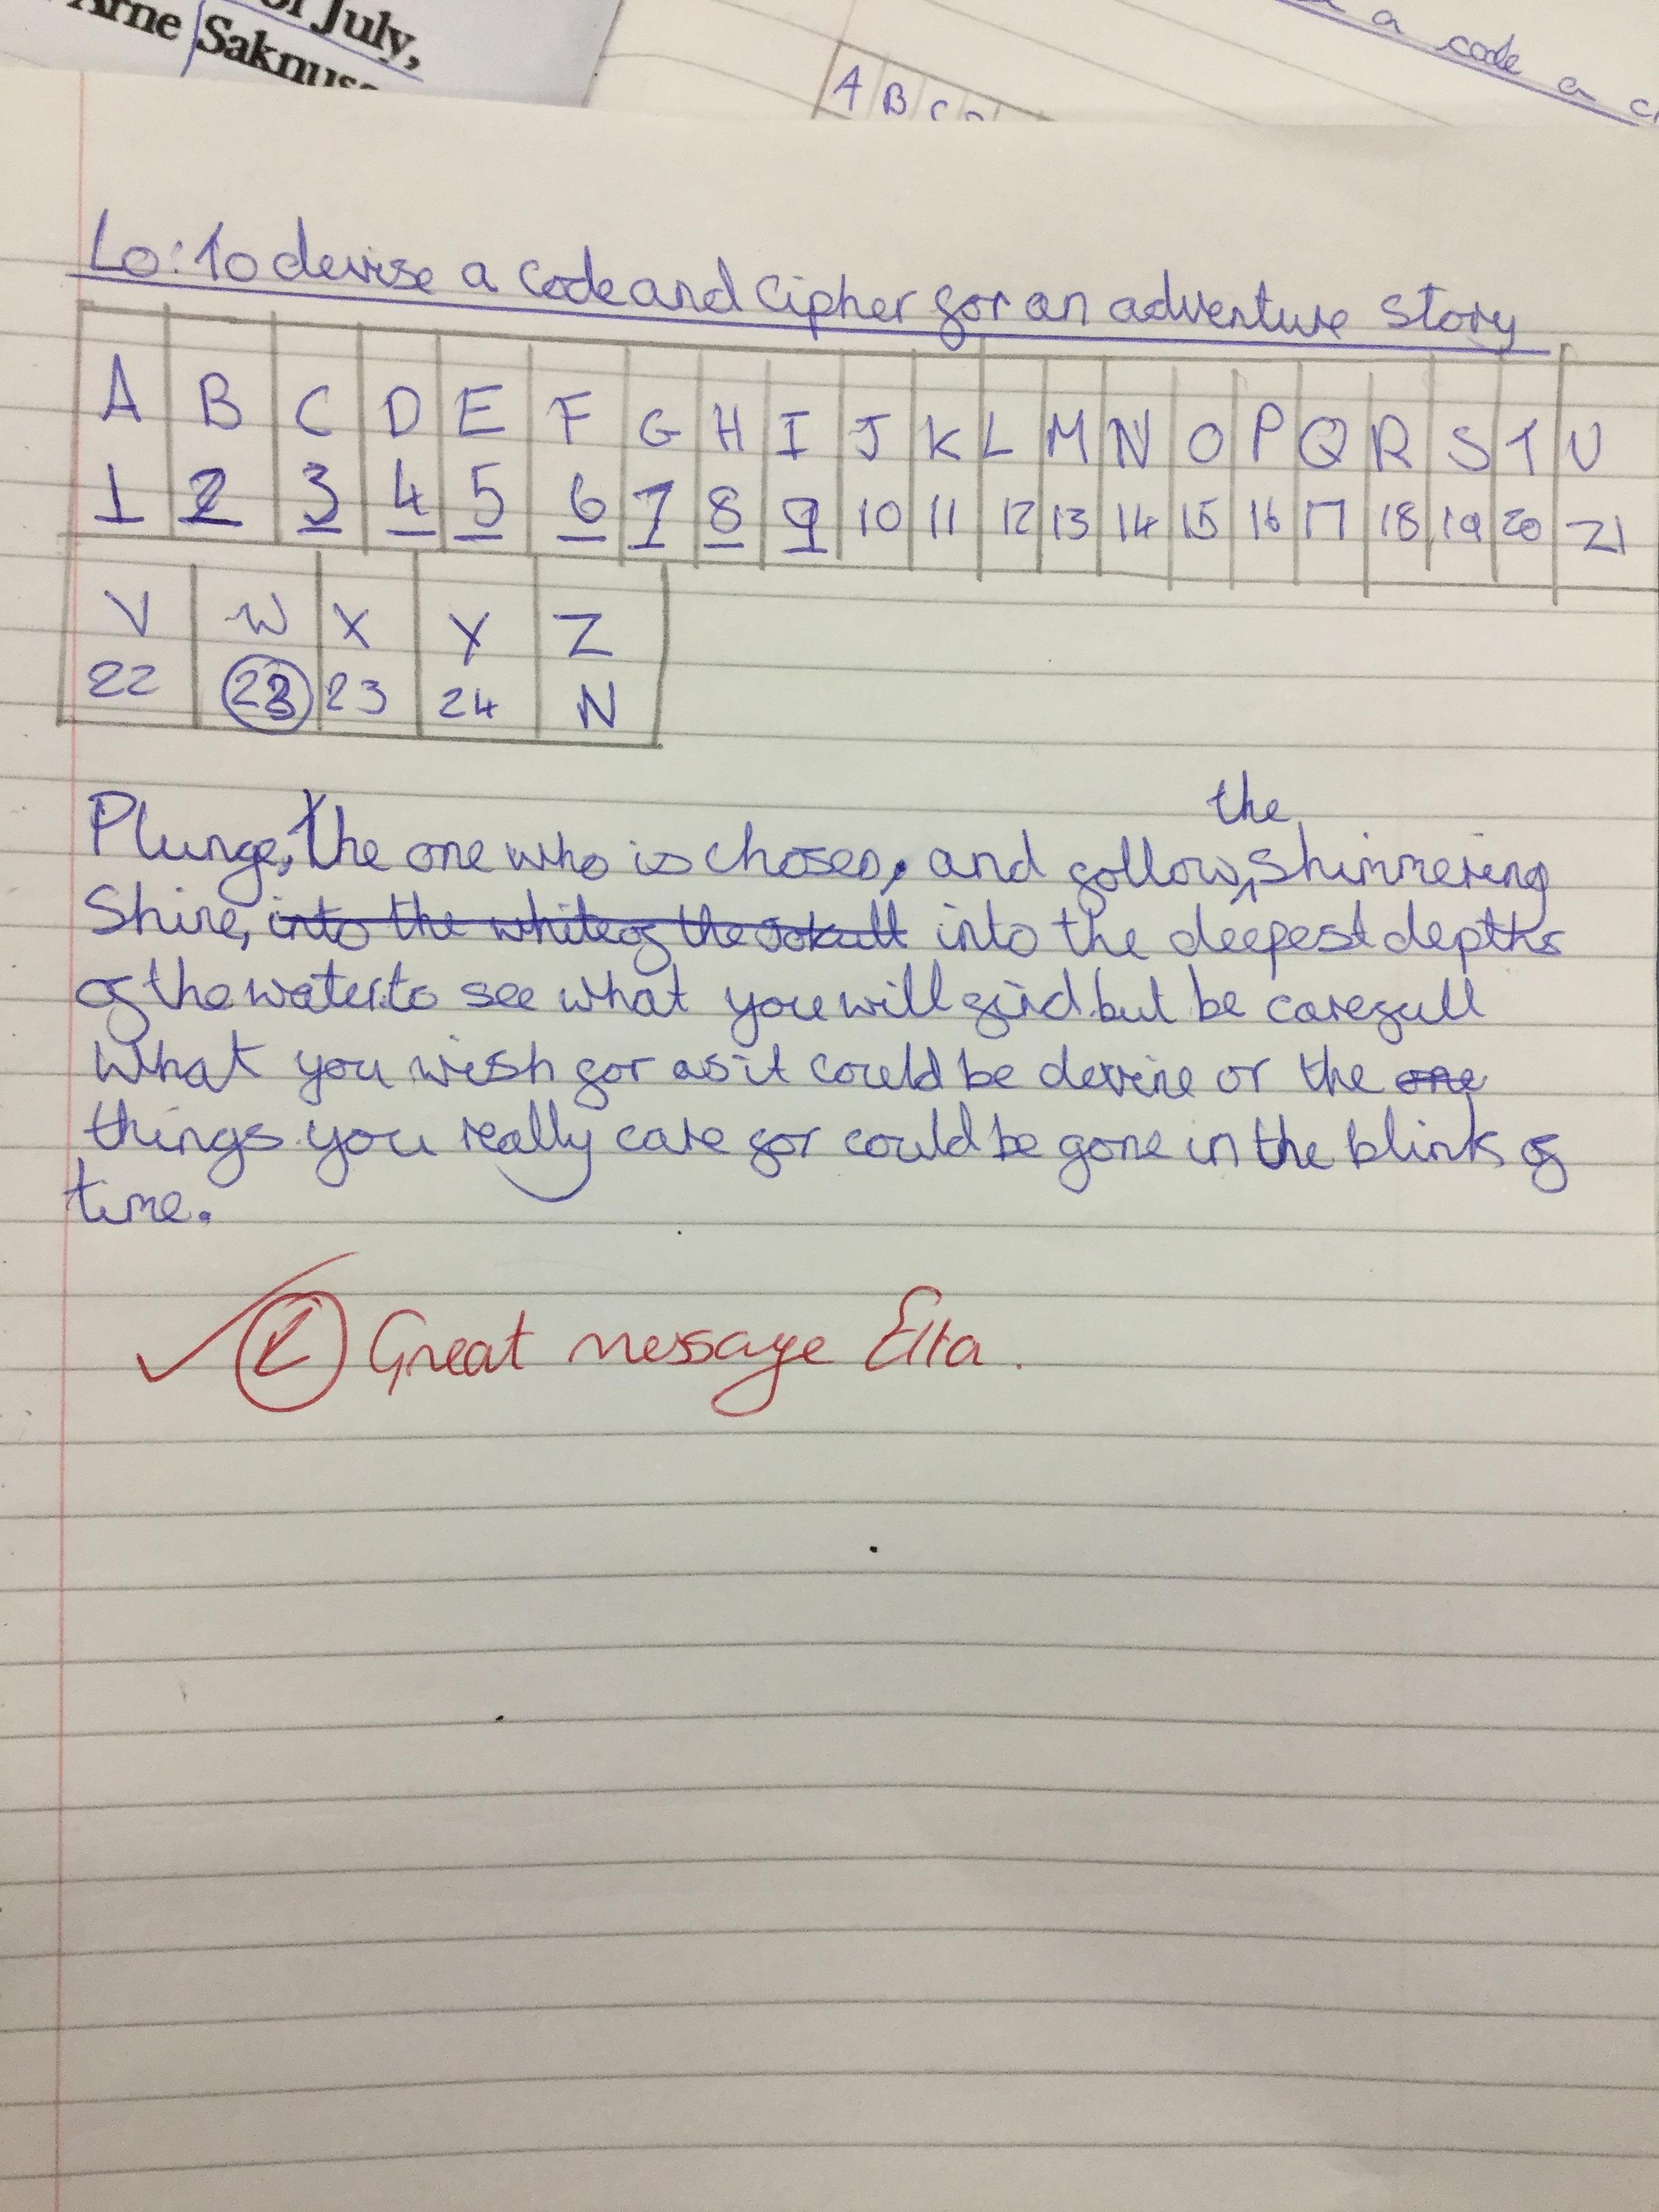 of July,
Arne Saknus
A B C D
a code a c
Lo: To devise a code and cipher for an adventure story
A B C D E F G H I J K L M N O P Q R S T U
1 2 3 4 5 6 7 8 9 10 11 12 13 14 15 16 17 18 19 20 21
V W X Y Z
22 23 23 24 N
the
Plunge, the one who is chosen, and follow, shimmering
Shine, into the white of the into the deepest depths
of the water.to see what you will find.but be carefull
What you wish for as it could be devine or the one
things you really care for could be gone in the blink of
time.
Great message Ella.